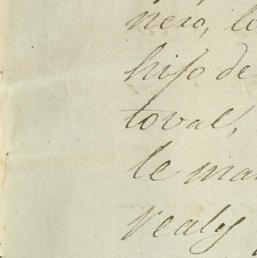 nero, l
hijo de
toval,
le ma
reales